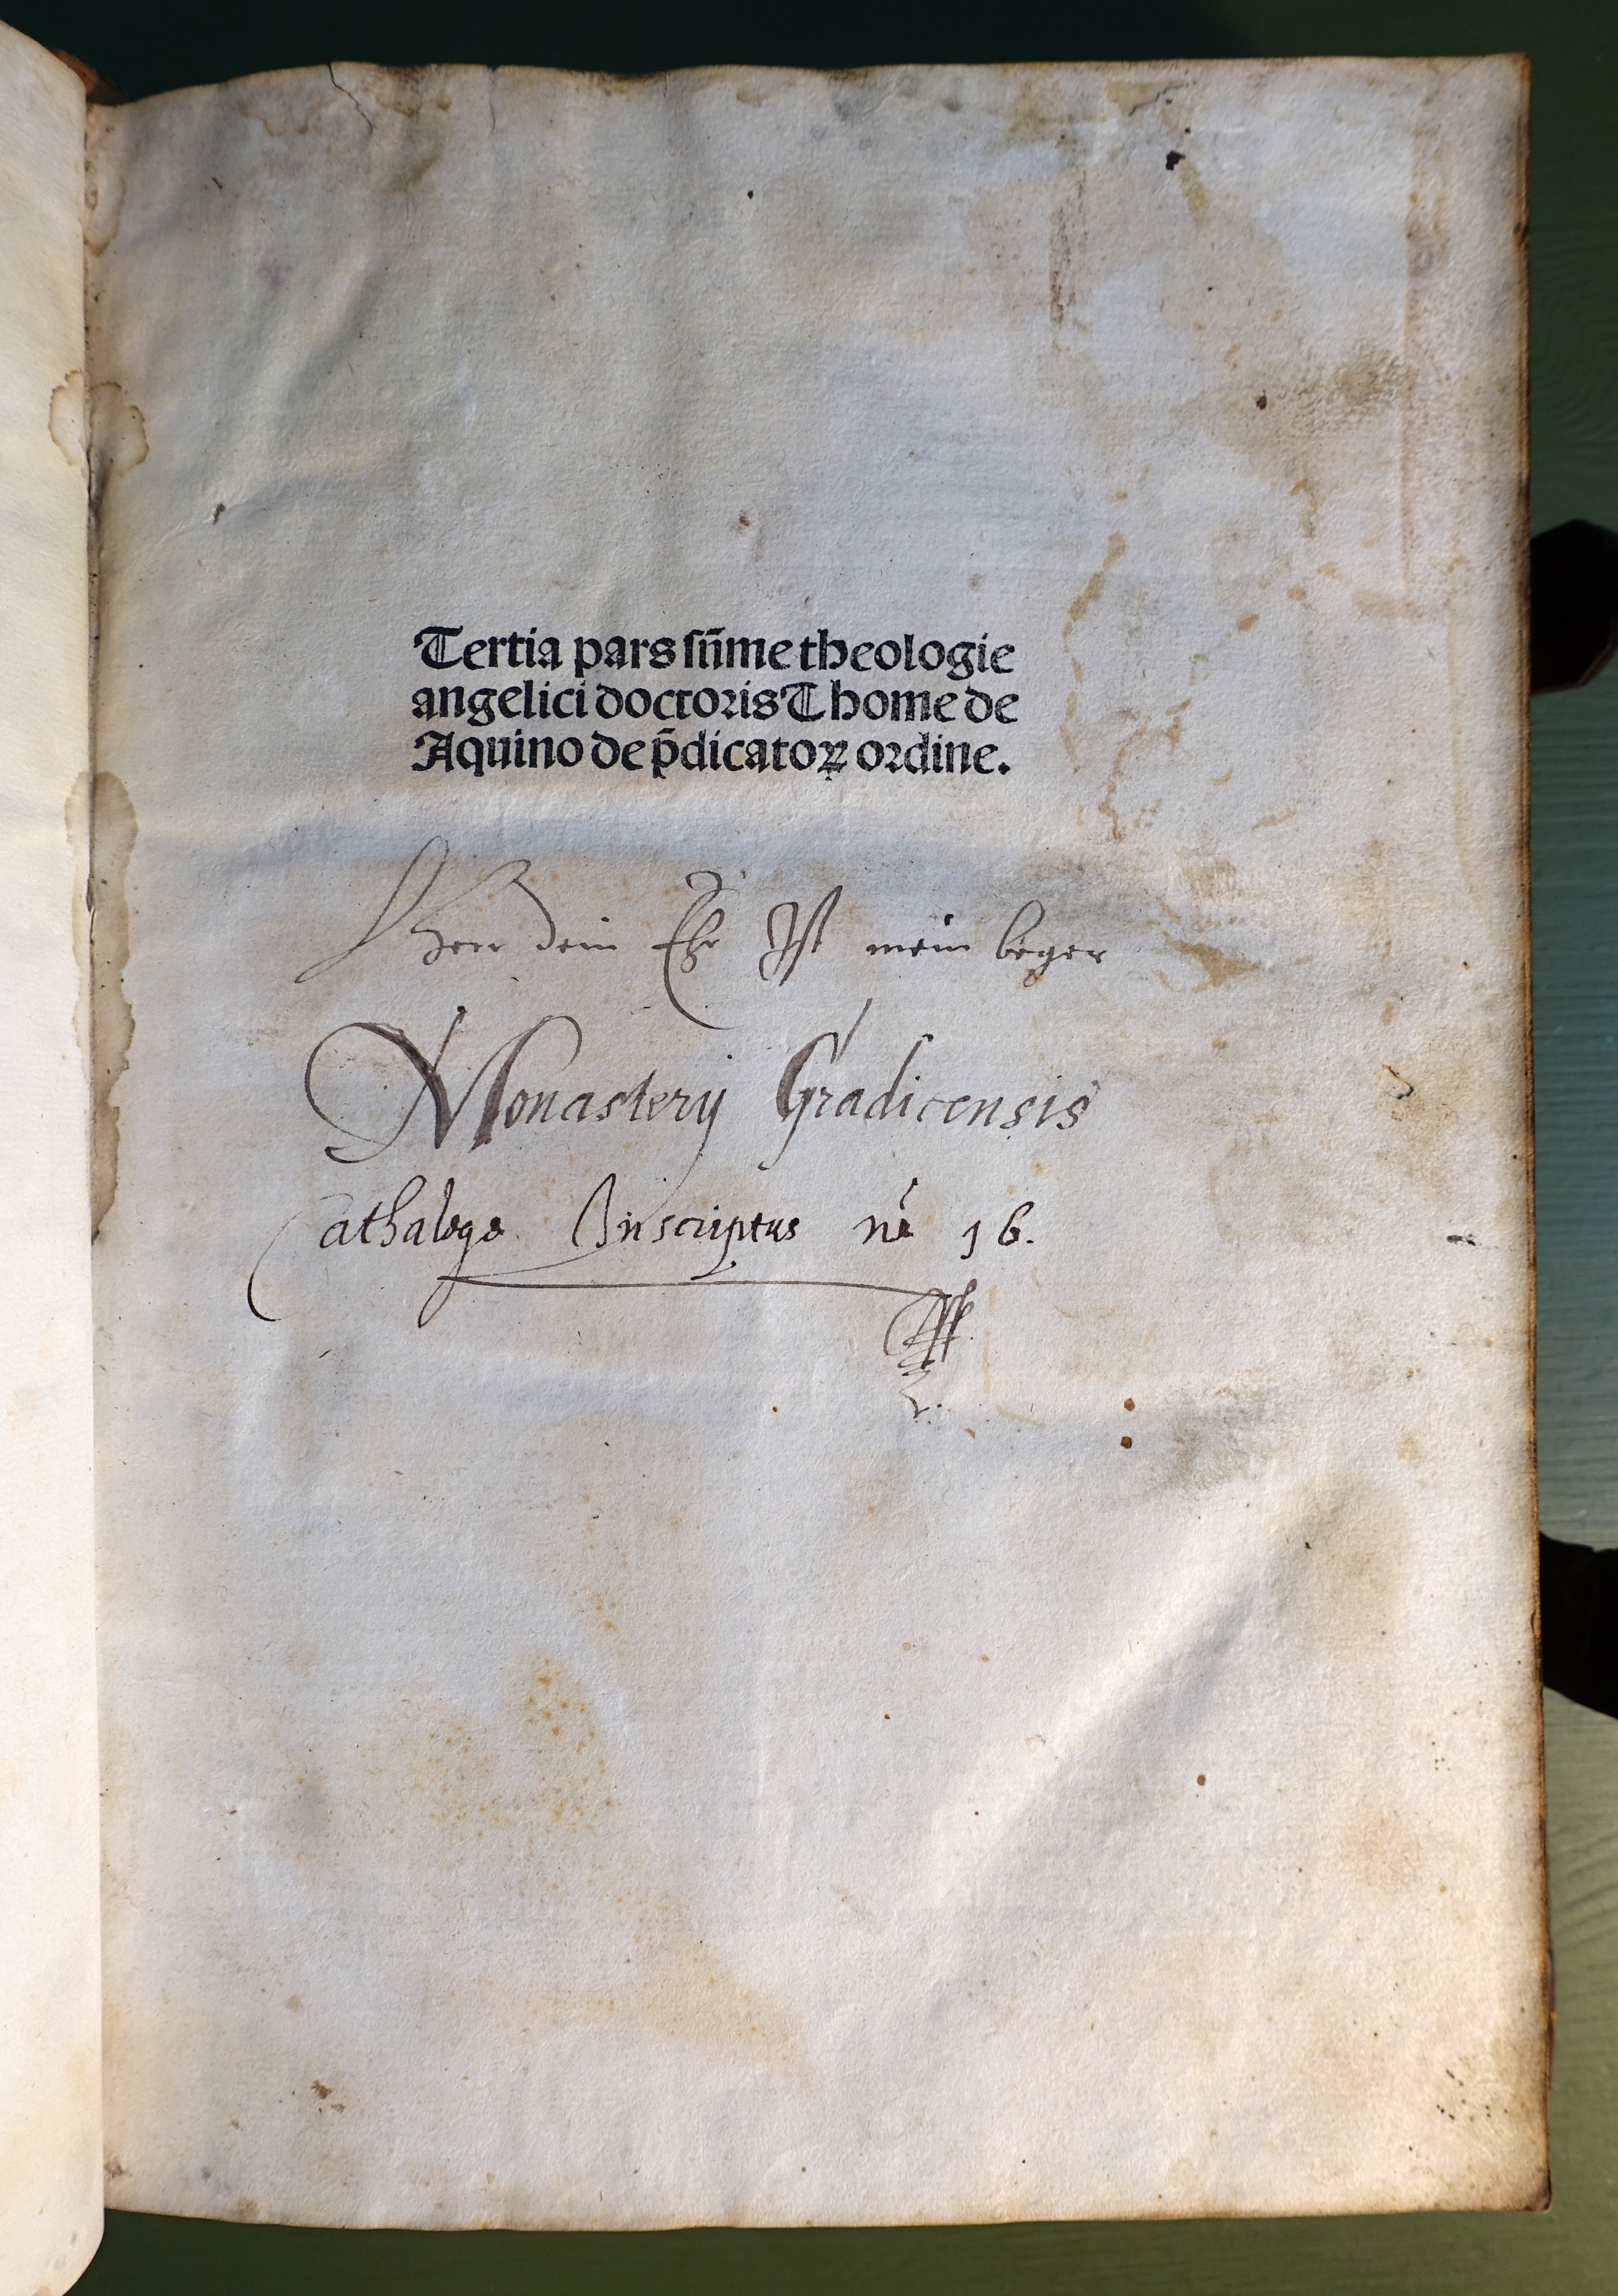 Tertia pars sum̄e theologie
angelici doctoris Thome de
Aquino de p̄dicatoꝝ ordine.
Herr dein Ehr Ist mein beger
Monasterij Gradicensis
Cathalogo Inscriptus n 16.